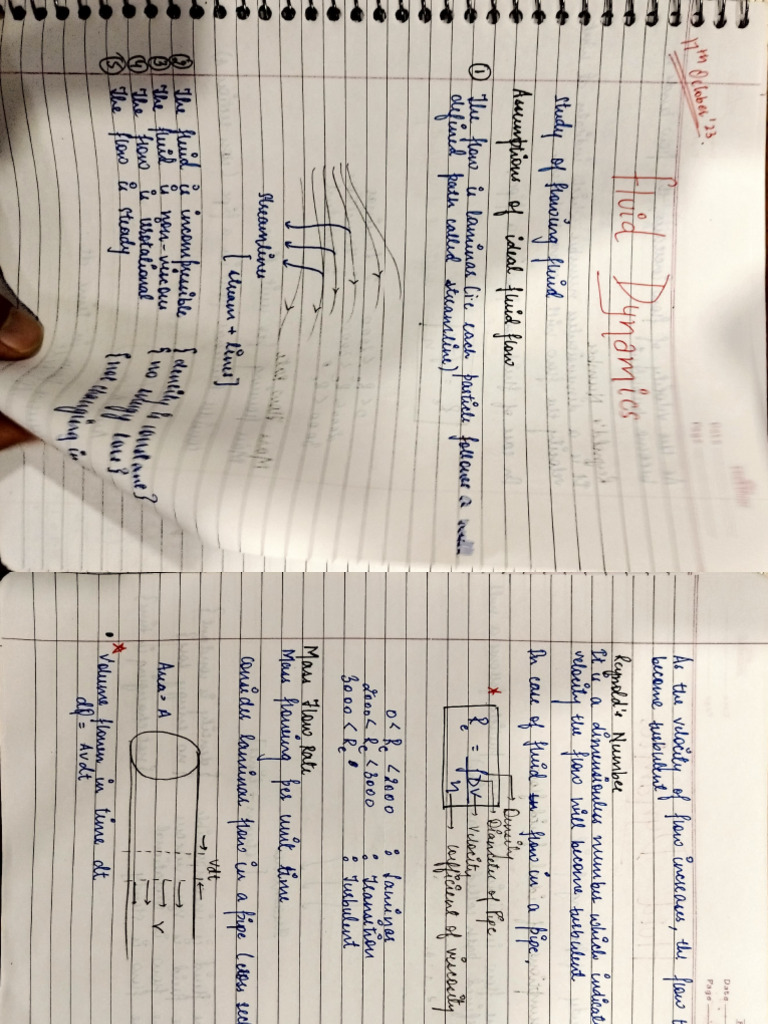 17th October '23.
Fluid Dynamics
Study of flowing fluid
Assumptions of ideal fluid flow
① The flow is laminar (ie each particle follows a
defined path called streamline)
Streamlines
[stream + lines]
② The fluid is incompressible {density is constant}
③ The fluid is non-viscous {no energy loss}
④ The flow is irrotational {not changing in
⑤ The flow is steady
Date
Page
As the velocity of flow increases, the flow
become turbulent
Reynold's Number
It is a dimensionless number which
velocity the flow will become turbulent
In case of fluid flow in a pipe,
* Re = ρDV / η
Density
Diameter of Pipe
Velocity
coefficient of viscosity
0 < Re < 2000 : Laminar
2000 < Re < 3000 : Transition
3000 < Re : Turbulent
Mass Flow Rate
Mass flowing per unit time
Consider laminar flow in a pipe (cross
Area = A
vdt
V
* • Volume flown in time dt
dQ = Avdt